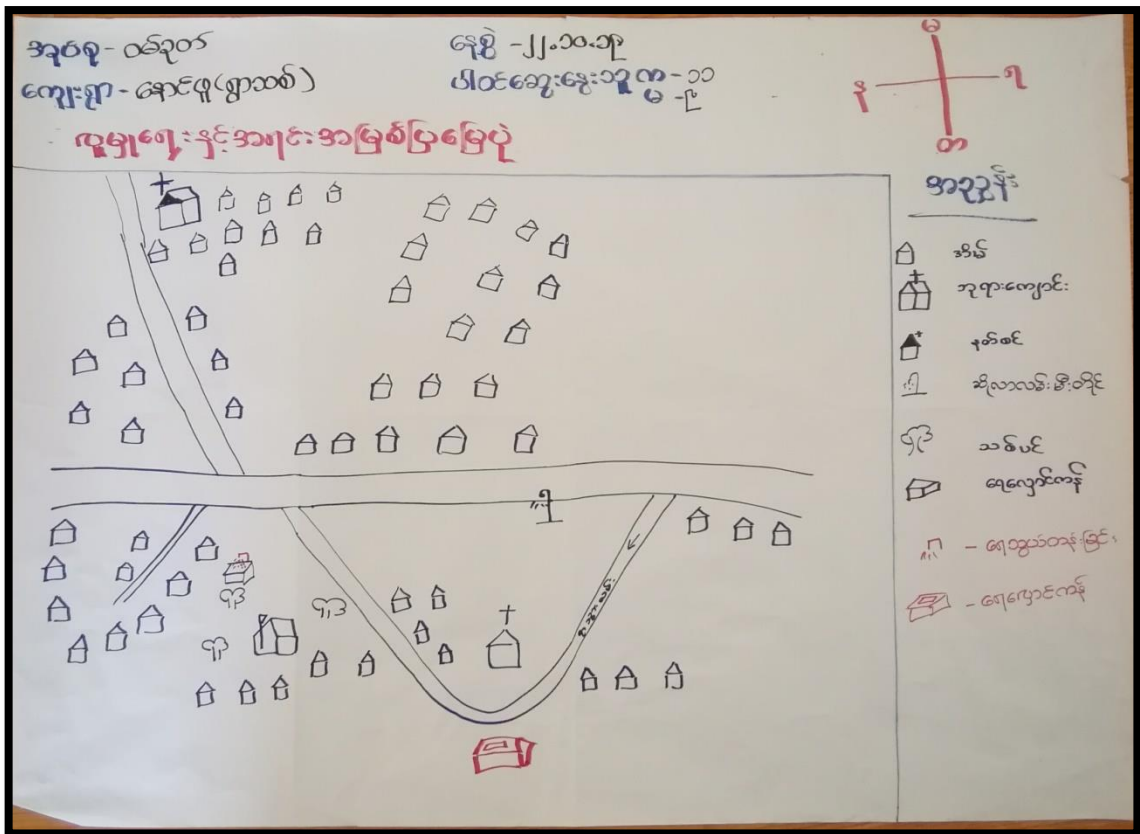 အုပ်စု - ဝမ်ခုတ်
ကျေးရွာ - နောင်ဖူ (ရွာသစ်)
နေ့စွဲ - ၂၂.၁၀.၁၉
ပါဝင်ဆွေးနွေးသူ ကျ - ၁၁
မ - ၉
လူမှုရေးနှင့်အရင်းအမြစ်ပြမြေပုံ
မ
န
ရ
တ
အညွှန်း
အိမ်
ဘုရားကျောင်း
နတ်စင်
ဆိုလာလမ်းမီးတိုင်
သစ်ပင်
ရေလှောင်ကန်
- ရေသွယ်တန်းခြင်း
- ရေလှောင်ကန်